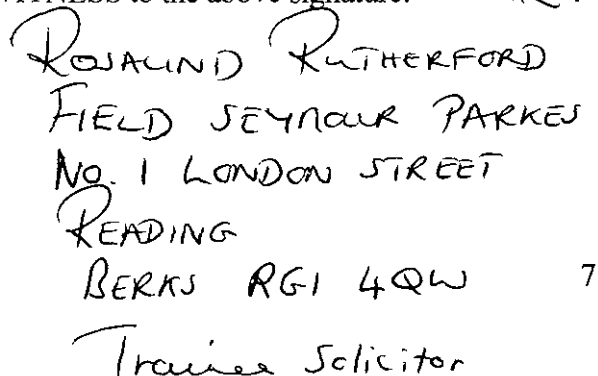 WITNESS to the above signature:
ROSALIND RUTHERFORD
FIELD SEYMOUR PARKES
No. 1 LONDON STREET
READING
BERKS RG1 4QW 7
Trainee Solicitor